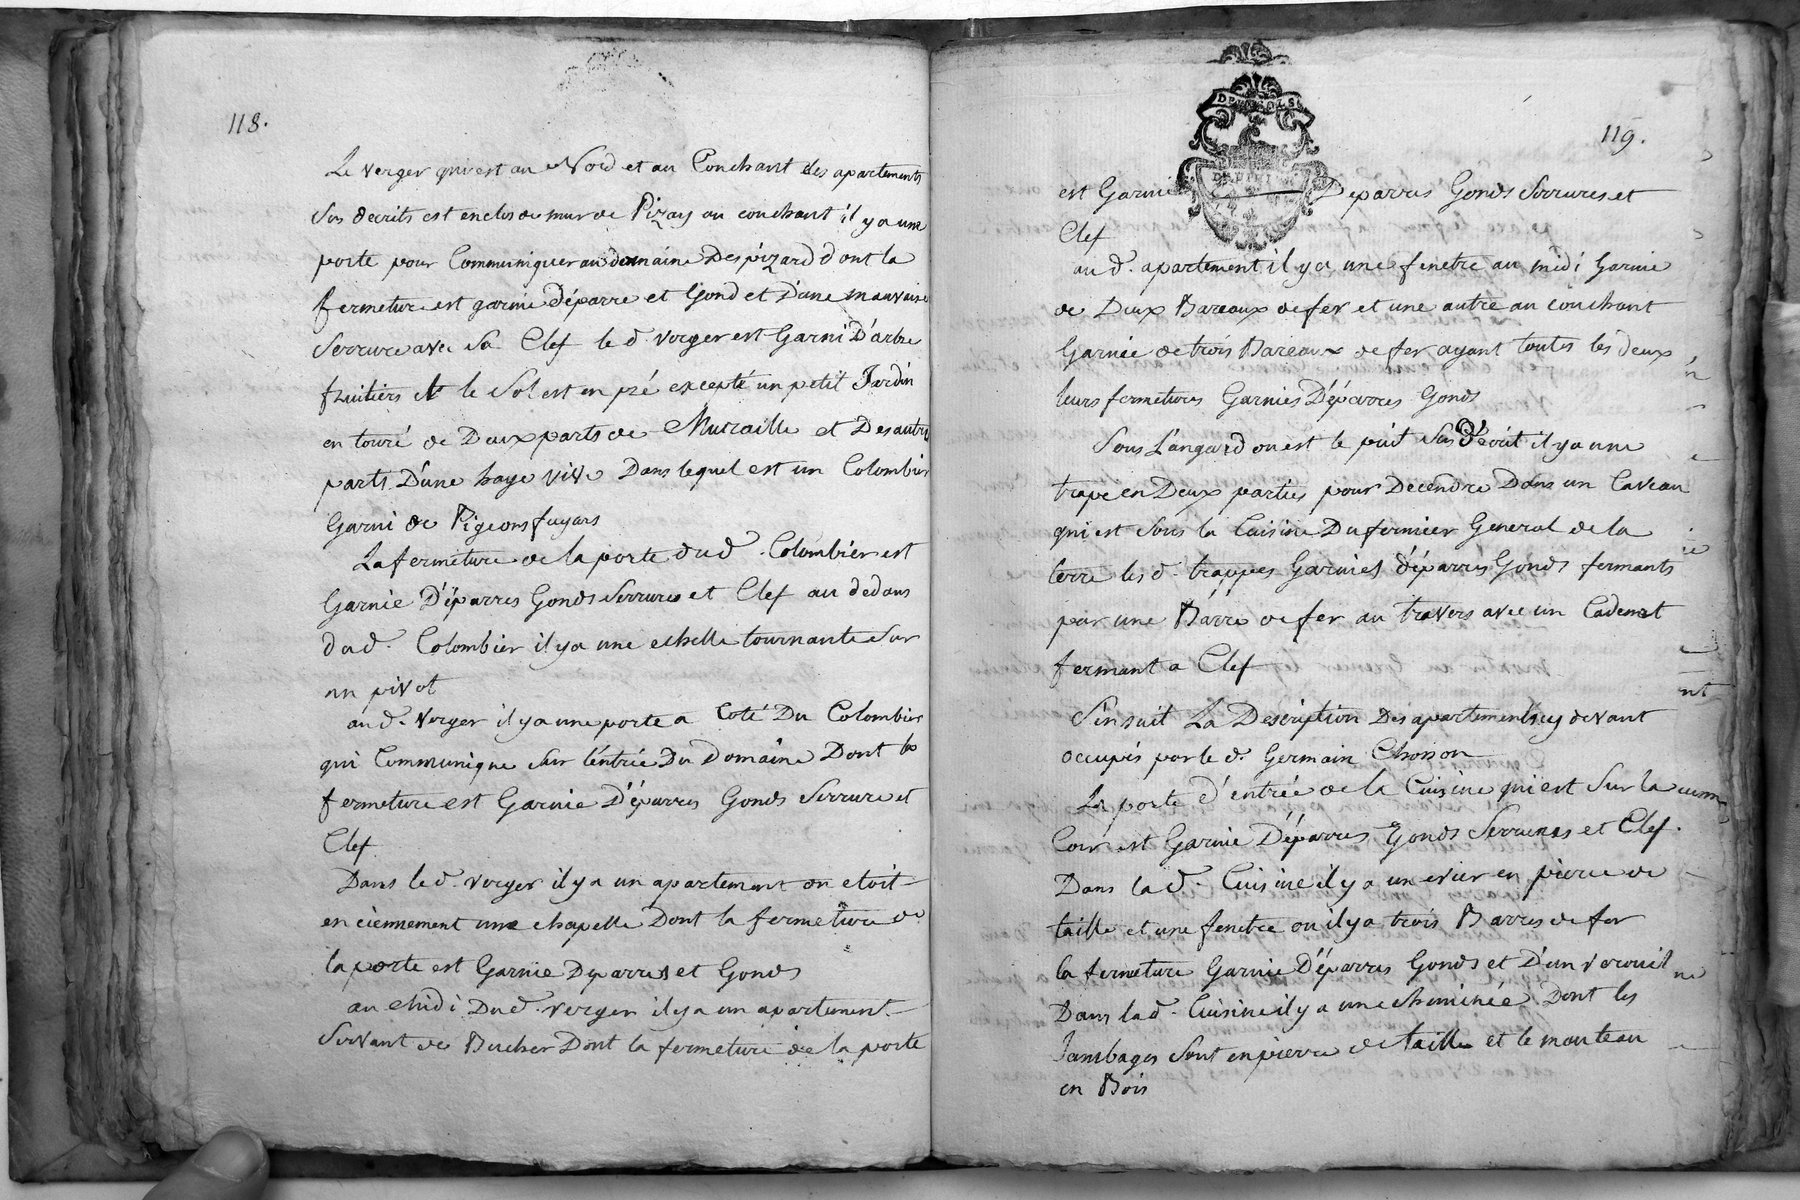 118.
Le verger qui est au Nord et au Couchant des apartements
sus decrits est enclos de mur de Pizay au couchant il y a une
porte pour Communiquer au domaine Des pizard dont la
fermeture est garnie d'éparre et Gond et D'une mauvaise
Serrure avec Sa Clef le d. verger est Garni D'arbre
fruitiers et le Sol est en pré excepté un petit Jardin
en touré de Deux parts de Muraille et Des autres
parts D'une haye vive Dans lequel est un Colombier
Garni de Pigeons fuyars
La fermeture de la porte du d. Colombier est
Garnie D'éparres Gonds Serrures et Clef au dedans
du d. Colombier il y a une echelle tournante Sur
un pivot
au d. Verger il y a une porte a Coté Du Colombier
qui Communique Sur l'entrée Du Domaine Dont la
fermeture est Garnie D'éparres Gonds Serrure et
Clef
Dans le d. verger il y a un apartement ou etoit
enciennement une chapelle Dont la fermeture de
la porte est Garnie Deparres et Gonds
au Midi Du d. verger il y a un apartement
Servant de Bucher Dont la fermeture de la porte
119.
est Garnie Deparres Gonds Serrures et
Clef
au d. apartement il y a une fenetre au midi Garnie
de Deux Bareaux de fer et une autre au couchant
Garnie de trois Bareaux de fer ayant toutes les deux
leurs fermetures Garnies D'éparres Gonds
Sous L'angard ou est le puit Sus Décrit il y a une
trape en Deux parties pour Decendre Dans un Caveau
qui est Sous la Cuisine Du fermier General de la
terre les d. trappes Garnies d'éparres Gonds fermants
par une Barre de fer au travers avec un Cadenat
fermant a Clef
S'ensuit La Description Des apartements cy devant
occupés par le d. Germain Choison
La porte d'entrée de la Cuisine qui est Sur la
Cour est Garnie D'éparres Gonds Serrures et Clef.
Dans la d. Cuisine il y a un evier en pierre de
taille et une fenetre ou il y a trois Barres de fer
la fermeture Garnie D'éparres Gonds et D'un verouil
Dans la d. Cuisine il y a une cheminée Dont les
Jambages Sont en pierre de taille et le manteau
en Bois